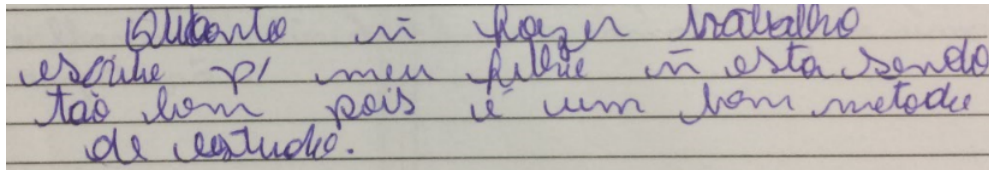 Quanto ñ fazer trabalho
escrito p/ meu filho ñ esta sendo
tão bom pois é um bom metodo
de estudo.